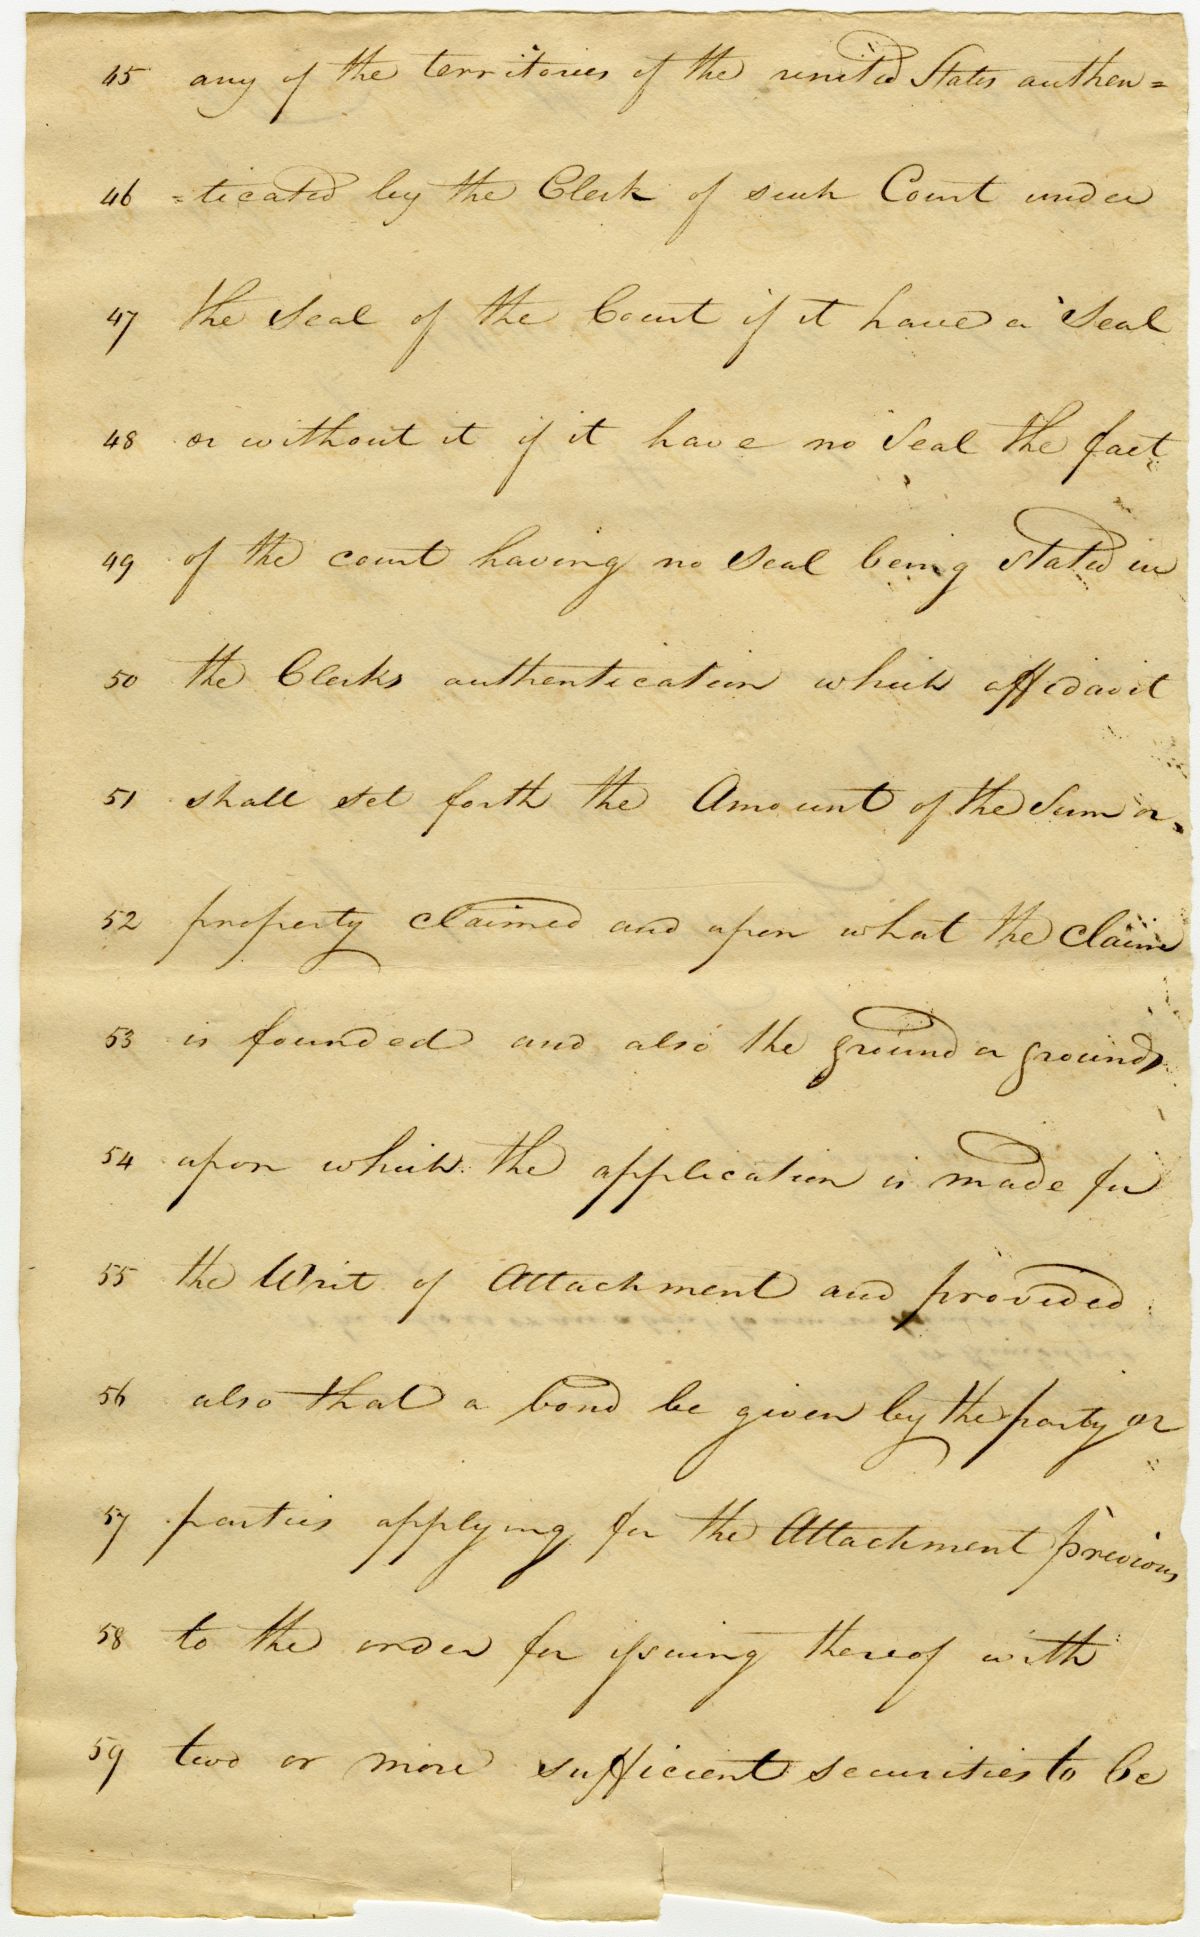 45 any of the territories of the united States authen=
46 =ticated by the Clerk of such Court under
47 the Seal of the Court if it have a Seal
48 or without it if it have no Seal the fact
49 of the court having no Seal being stated in
50 the Clerks authentication which affidavit
51 shall set forth the Amount of the Sum or
52 property claimed and upon what the claim
53 is founded and also the ground or grounds
54 upon which the application is made for
55 the Writ of Attachment and provided
56 also that a bond be given by the party or
57 parties applying for the Attachment previous
58 to the order for issuing thereof with
59 two or more sufficient securities to be